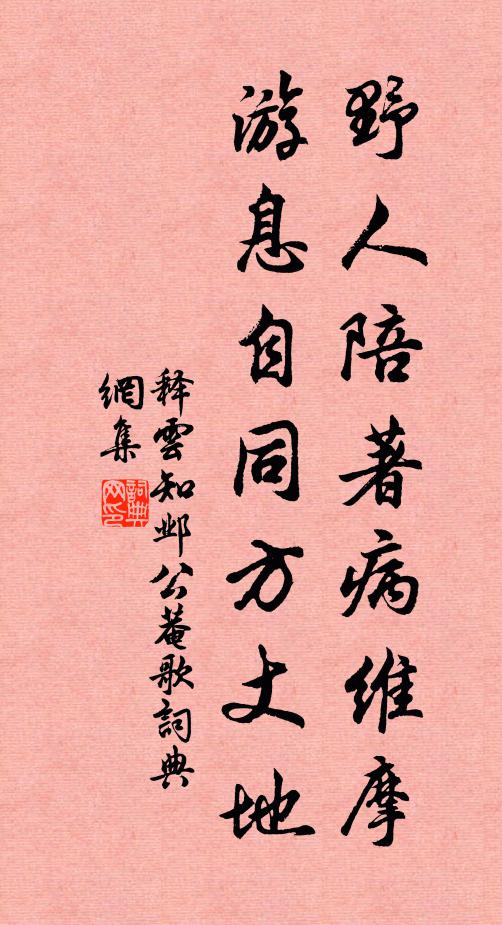 野人陪著病維摩
游息自同方丈地
释雲知邺公菴歌詞典
網集
詞典
网印